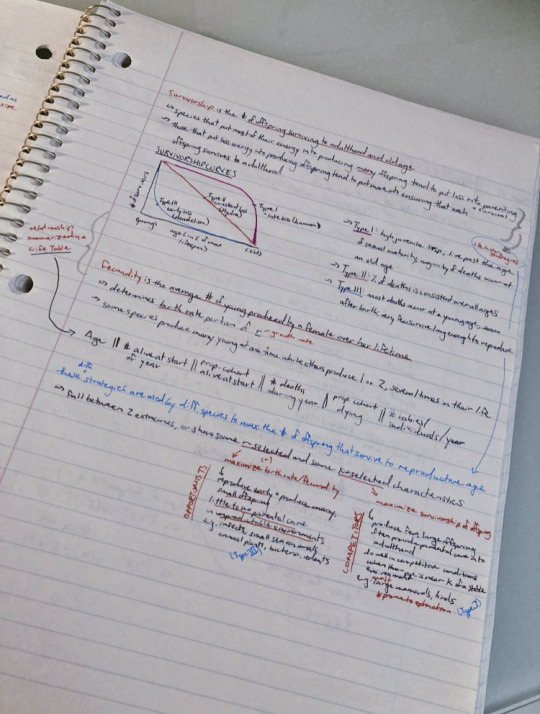 Survivorship is the # of offspring surviving to adulthood and old age
↳ species that put most of their energy into producing many offspring tend to put less into parenting
→ those that put less energy into producing offspring tend to put more into ensuring that each
offspring survives to adulthood
SURVIVORSHIP CURVES
# of survivors
Type I
late loss (human)
Type II
constant loss
(hydra)
Type III
early loss
(dandelion)
(young)
age (in % of max
lifespan)
(old)
→ Type I: high juvenile
of sexual maturity, majority of deaths occur at
an old age
→ Type II: % of deaths is consistent over all ages
→ Type III: most deaths occur at a young age, some
after birth, very few survive long enough to reproduce
relationship
summarized in a
Life Table
Fecundity is the average # of young produced by a female over her lifetime
↳ determines birth rate portion of r - growth rate
→ some species produce many young at one time while others produce 1 or 2, several times in their life
→ Age || # alive at start of year || prop. cohort alive at start || # deaths during year || prop. cohort dying || # babies/individuals/year
diff
these strategies are used by diff species to max the # of offspring that survive to reproductive age
↳ fall between 2 extremes, or share some r-selected and some K-selected characteristics
OPPORTUNISTS
(r)
maximize birth rate/fecundity
↳ reproduce early + produce many,
small offspring
little to no parental care
in unpredictable environments
e.g. insects, small seasonal
annual plants, bacteria, rodents
(Type III)
COMPETITORS
maximize survivorship of offspring
↳ produce few, large offspring
often provide parental care into
adulthood
do well in competitive conditions
when the population is near K of a stable
environment
e.g. large mammals, birds
* prone to extinction
(Type I)